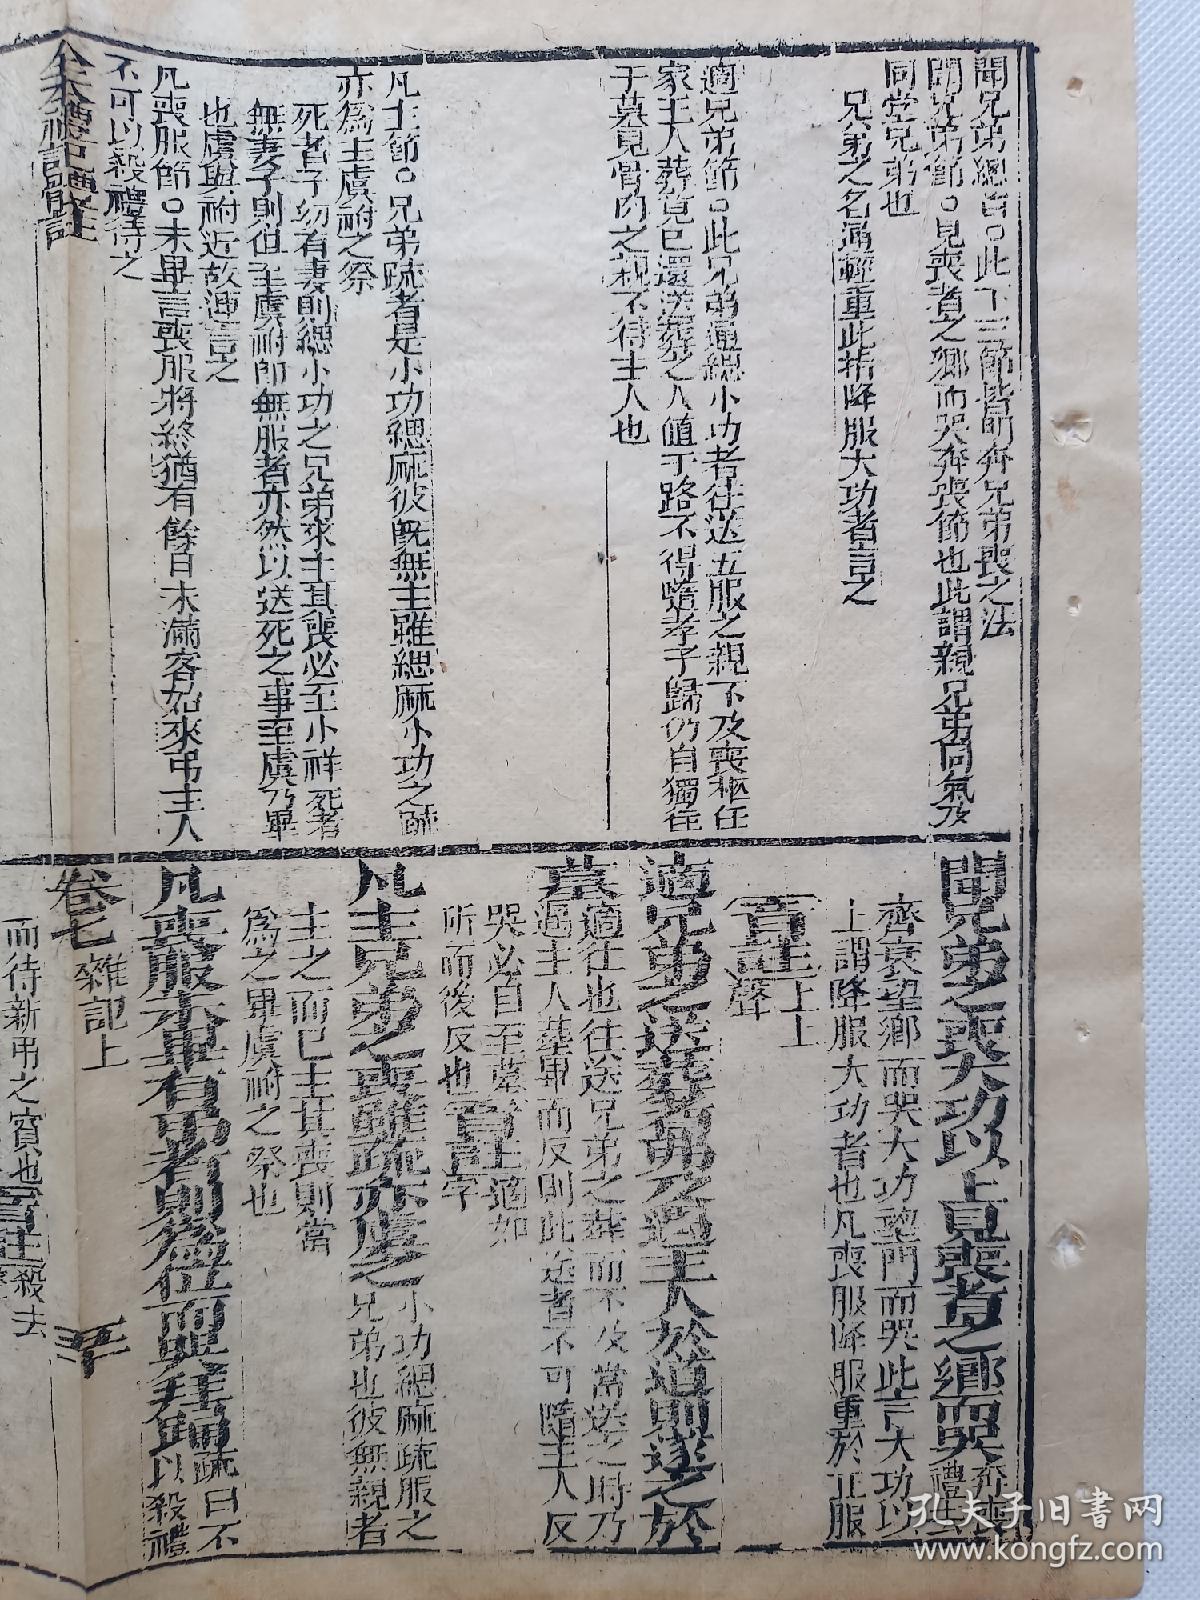 聞兄弟總旨○此下三節皆明奔兄弟喪之法
聞兄弟節○見喪者之鄉而哭奔喪節也此謂親兄弟同氣及
同堂兄弟也
兄弟之名通輕重此指降服大功者言之
適兄弟節○此兄弟通緦小功者往送五服之親不及喪柩在
家主人葬竟已還送葬之人值于路不得隨孝子歸仍自獨往
于墓見骨肉之親不待主人也
凡主節○兄弟疏者是小功緦麻彼既無主雖緦麻小功之疏
亦為主虞祔之祭
死者子幼有妻則緦小功之兄弟來主其喪必至小祥死者
無妻子則但主虞祔即無服者亦然以送死之事至虞乃畢
也虞與祔近故連言之
凡喪服節○未畢言喪服將終猶有餘日未滿客如來弔主人
不可以殺禮待之
聞兄弟之喪大功以上見喪者之鄉而哭奔喪禮云
齊衰望鄉而哭大功望門而哭此言大功以
上謂降服大功者也凡喪服降服重於正服
音註上上聲
適兄弟之送葬者弗及遇主人於道則遂之於
墓適往也往送兄弟之葬而不及當送之時乃
遇主人葬畢而反則此送者不可隨主人反
哭必自至墓
所而後反也音註適如字
凡主兄弟之喪雖疏亦虞之小功緦麻疏服之
兄弟也彼無親者
主之而已主其喪則當
為之畢虞祔之祭也
凡喪服未畢有弔者則為位而哭拜踊疏曰不
以殺禮
全本禮記體註
卷七 雜記上
而待新弔之賓也音註殺去
孔夫子旧书网
www.kongfz.com